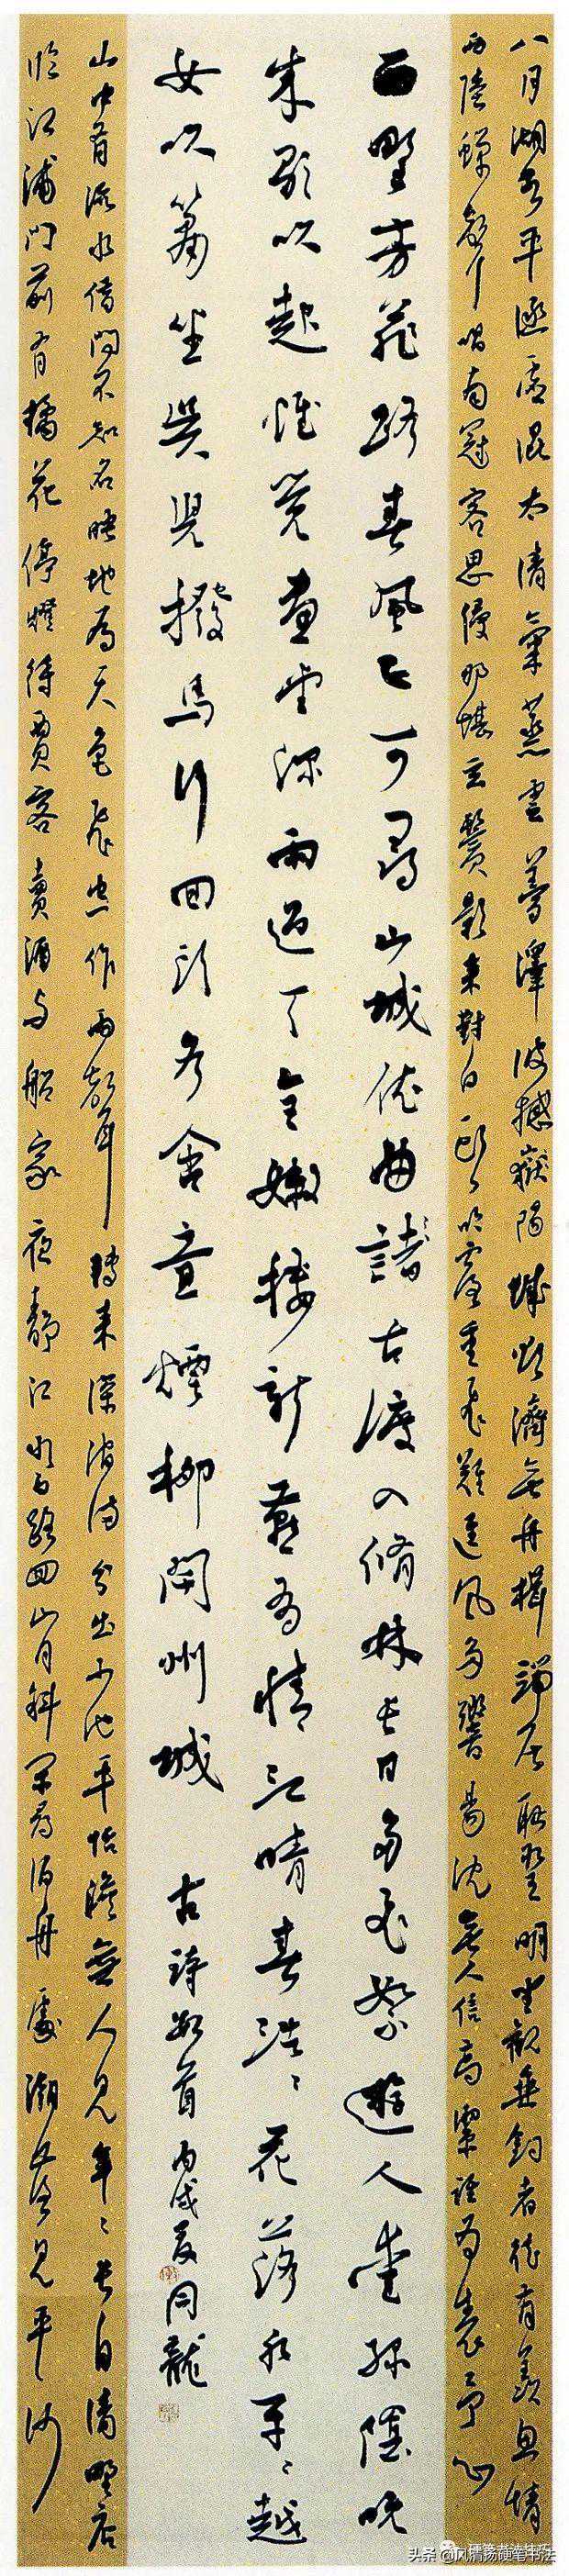 八月湖水平涵虛混太清氣蒸雲夢澤波撼嶽陽城欲濟無舟楫端居恥聖明坐觀垂釣者徒有羨魚情
西陸蟬聲唱南冠客思侵那堪玄鬢影來對白頭吟露重飛難進風多響易沈無人信高潔誰為表予心
西野芳菲路春風正可尋山城依曲渚古渡入脩林長日多飛絮遊人愛綠陰晚
来歌吹起惟覺畫堂深雨過草全嫩樓新燕有情江晴春浩々花落水平々越
女吹簫坐吳兒撥馬行回頭各含意煙柳閉州城 古詩數首 丙戌夏同龍
山中有流水借問不知名映地為天色飛空作雨聲轉來深澗滿分出小池平恬澹無人見年々長自清野店
臨江浦門前有橘花停燈待賈客賣酒與船家夜靜江水白路迴山月斜閒尋泊舟處潮落見平沙
头条 @风清扬硬笔书法